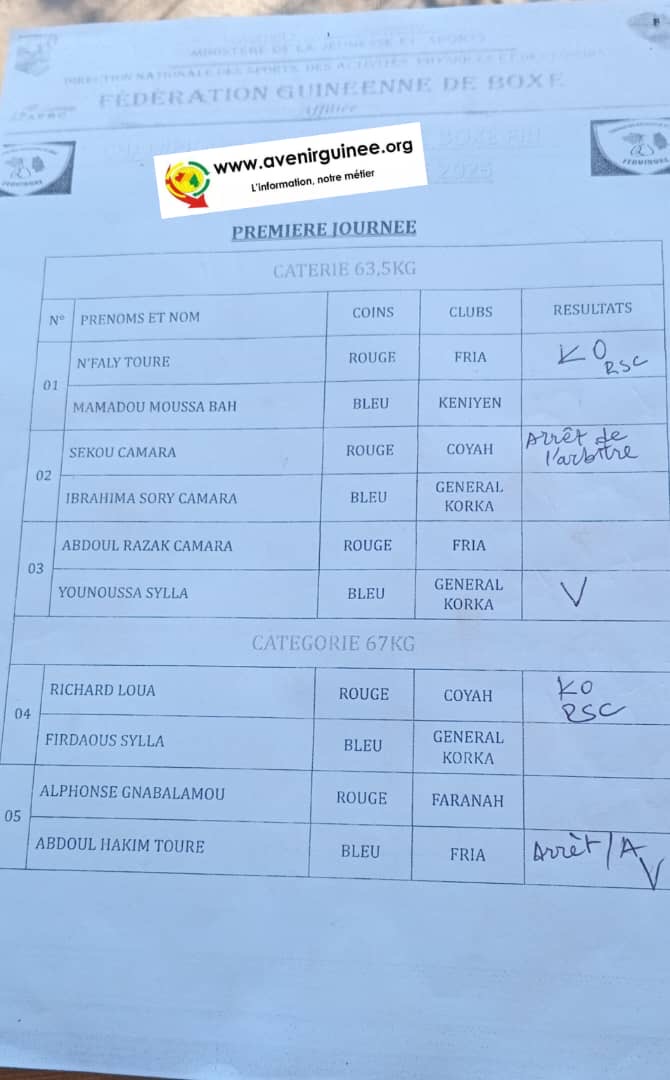 MINISTERE DE LA JEUNESSE ET SPORTS
DIRECTION NATIONALE DES SPORTS, DES ACTIVITES PHYSIQUES ET
FÉDÉRATION GUINEENNE DE BOXE
Affiliée
BOXE
2025
FEGUIBOXE
www.avenirguinee.org
L'information, notre métier
PREMIERE JOURNEE
CATERIE 63,5KG
N° PRENOMS ET NOM COINS CLUBS RESULTATS
01 N'FALY TOURE ROUGE FRIA KO RSC
MAMADOU MOUSSA BAH BLEU KENIYEN
02 SEKOU CAMARA ROUGE COYAH Arrêt de l'arbitre
IBRAHIMA SORY CAMARA BLEU GENERAL KORKA
03 ABDOUL RAZAK CAMARA ROUGE FRIA
YOUNOUSSA SYLLA BLEU GENERAL KORKA V
CATEGORIE 67KG
04 RICHARD LOUA ROUGE COYAH KO RSC
FIRDAOUS SYLLA BLEU GENERAL KORKA
05 ALPHONSE GNABALAMOU ROUGE FARANAH
ABDOUL HAKIM TOURE BLEU FRIA Arrêt/A V